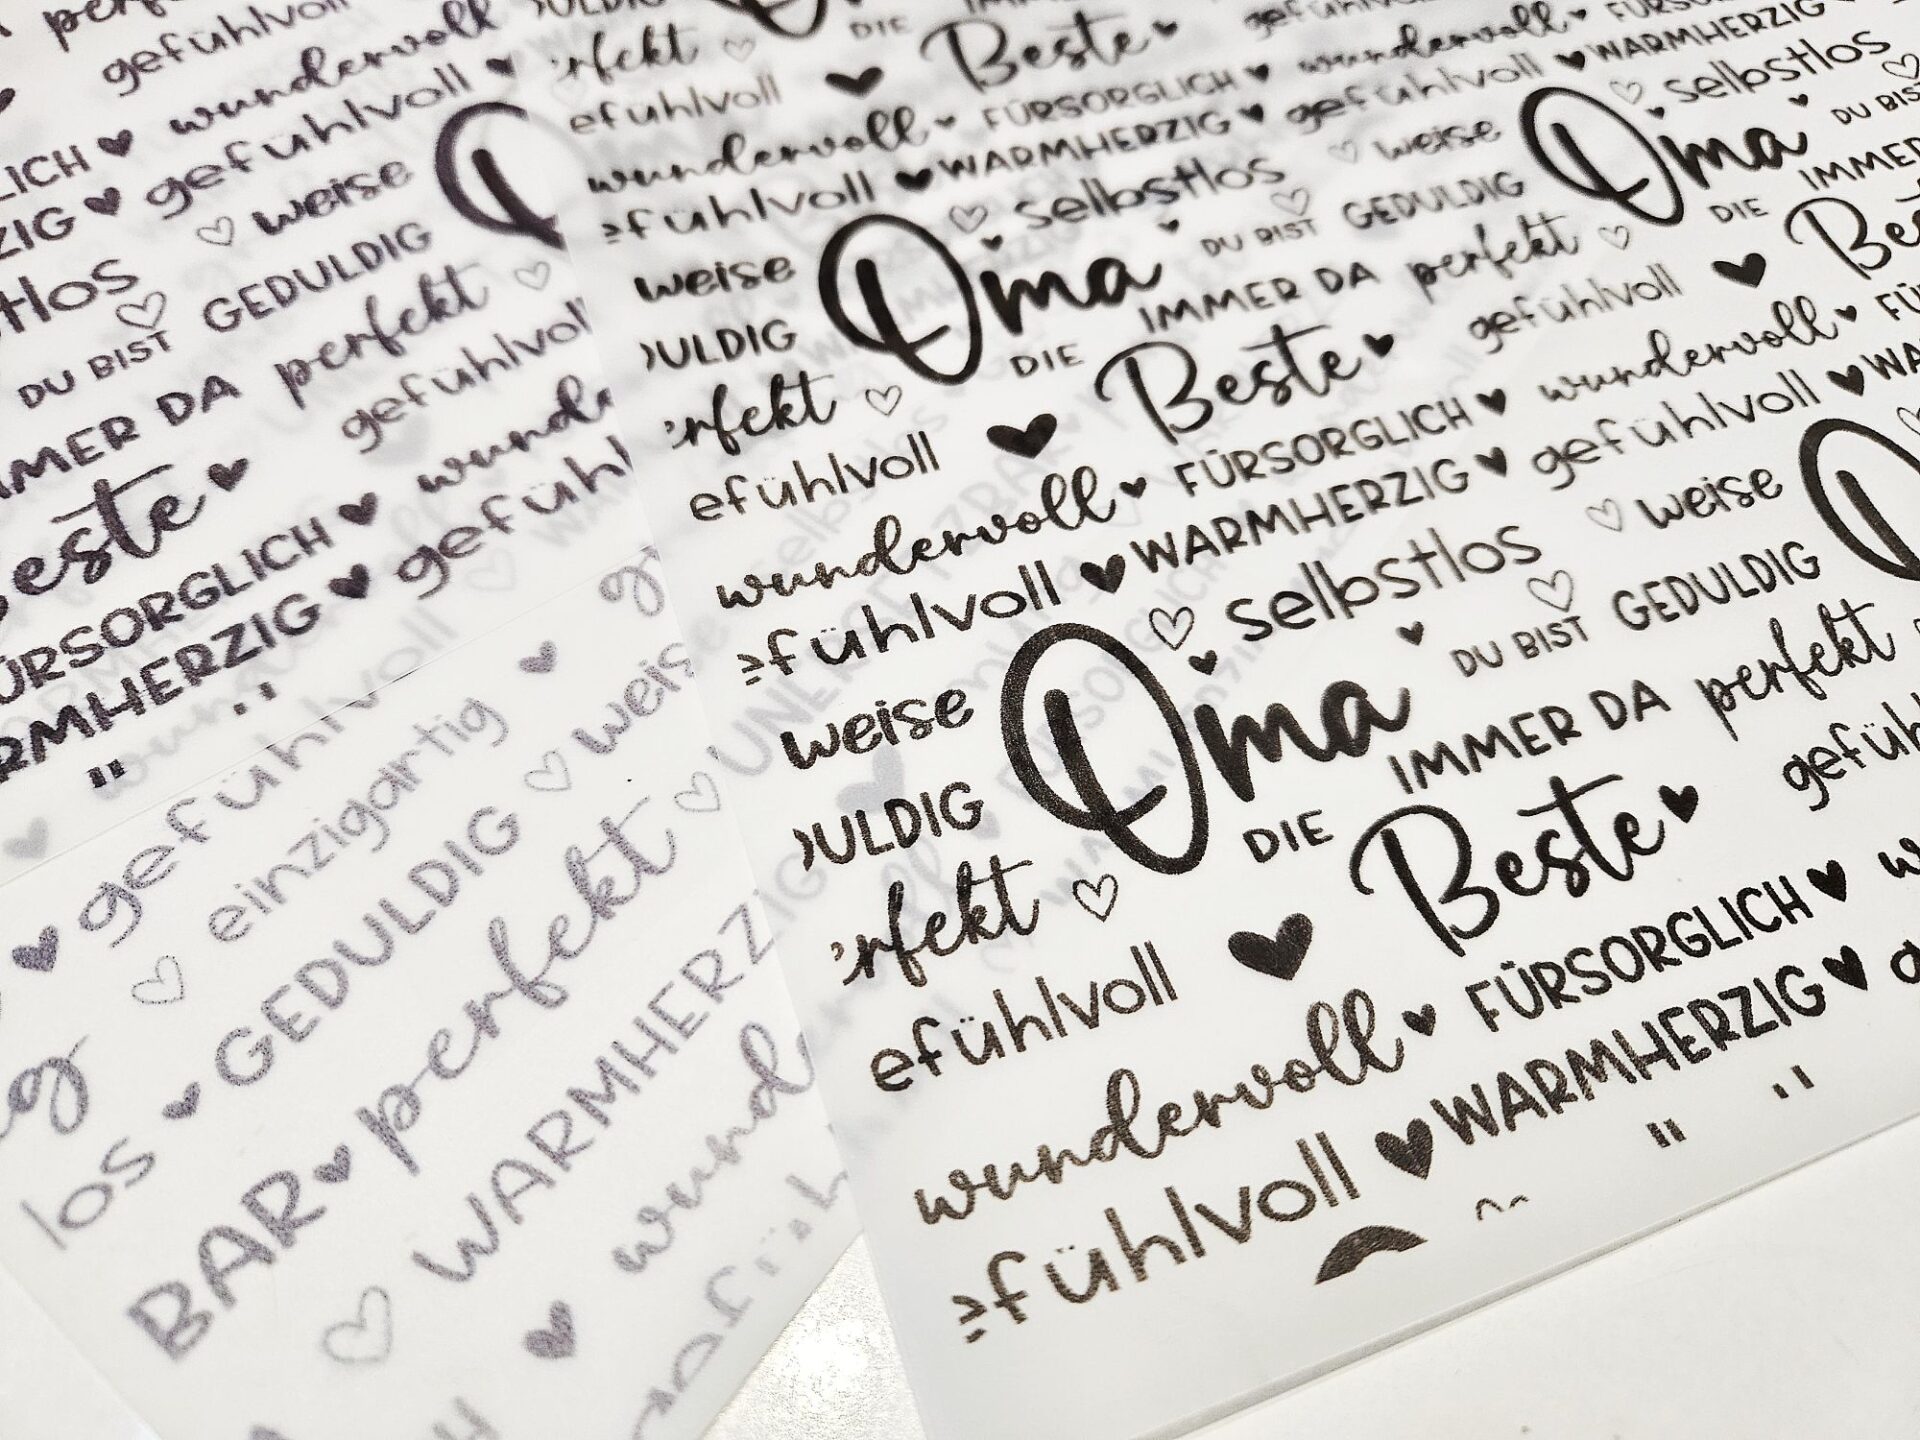 gefühlvoll
perfekt
wundervoll
LICH ♥ gefühlvoll ♥
ZIG ♥ ♡ weise
GEDULDIG
DU BIST perfekt ♡
IMMER DA gefühlvol
Beste ♥
FÜRSORGLICH ♥
WARMHERZIG ♥
♥ gefühlvoll
♡ einzigartig ♥
los ♥ GEDULDIG ♡ weise
BAR ♥ perfekt ♡
♡ WARMHERZIG
♥ wund
DIE
rfekt ♡ Beste ♥
efühlvoll ♥ FÜRSORGLICH ♥ wundervoll ♥
wundervoll ♥ WARMHERZIG ♥ gefühlvoll ♥ WARMHERZIG
fühlvoll ♡ selbstlos ♡ weise Oma ♡ selbstlos
weise Oma DU BIST GEDULDIG DU BIST
ULDIG IMMER DA perfekt ♡ DIE IMMER
rfekt ♡ DIE Beste ♥ gefühlvoll ♥ Bes
efühlvoll ♥ FÜRSORGLICH ♥ wundervoll ♥ FÜ
wundervoll ♥ WARMHERZIG ♥ gefühlvoll ♥ WA
fühlvoll ♡ selbstlos ♡ weise
weise Oma DU BIST ♡ GEDULDIG
ULDIG IMMER DA perfekt
rfekt ♡ DIE Beste ♥ gefüh
efühlvoll ♥ FÜRSORGLICH ♥
wundervoll ♥ WARMHERZIG ♥
fühlvoll ♥